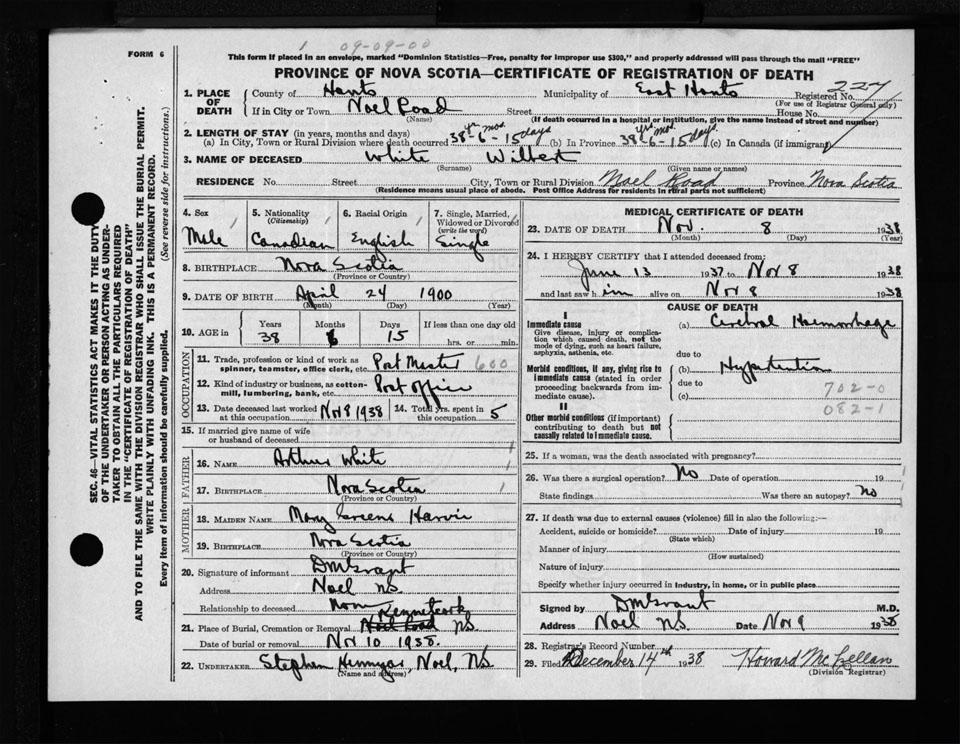 FORM 6
1 09-09-00
This form if placed in an envelope, marked "Dominion Statistics—Free, penalty for improper use $300," and properly addressed will pass through the mail "FREE"
PROVINCE OF NOVA SCOTIA—CERTIFICATE OF REGISTRATION OF DEATH
227
1. PLACE OF DEATH County of Hants Municipality of East Hants Registered No.
(For use of Registrar General only)
If in City or Town Noel Road Street House No.
(Name) (If death occurred in a hospital or institution, give the name instead of street and number)
2. LENGTH OF STAY (in years, months and days)
(a) In City, Town or Rural Division where death occurred 38 yrs - 6 mos - 15 days (b) In Province 38 yrs - 6 mos - 15 days (c) In Canada (if immigrant)
3. NAME OF DECEASED White Wilbert
(Surname) (Given name or names)
RESIDENCE No. Street City, Town or Rural Division Noel Road Province Nova Scotia
(Residence means usual place of abode. Post Office Address for residents in rural parts not sufficient)
4. Sex Male
5. Nationality (Citizenship) Canadian
6. Racial Origin English
7. Single, Married, Widowed or Divorced (write the word) Single
8. BIRTHPLACE Nova Scotia
(Province or Country)
9. DATE OF BIRTH April 24 1900
(Month) (Day) (Year)
10. AGE in Years Months Days If less than one day old
38 6 15 hrs. or min.
OCCUPATION
11. Trade, profession or kind of work as spinner, teamster, office clerk, etc. Post Master 600
12. Kind of industry or business, as cotton-mill, lumbering, bank, etc. Post Office
13. Date deceased last worked at this occupation Nov 8 1938 14. Total yrs. spent in this occupation 5
15. If married give name of wife or husband of deceased
FATHER
16. NAME Arthur White
17. BIRTHPLACE Nova Scotia
(Province or Country)
MOTHER
18. MAIDEN NAME Mary Greene Harvie
19. BIRTHPLACE Nova Scotia
(Province or Country)
20. Signature of informant D M Grant
Address Noel NS
Relationship to deceased None
21. Place of Burial, Cremation or Removal Noel Road Kennetcook NS.
Date of burial or removal Nov 10 1938.
22. UNDERTAKER Stephen Hennigar, Noel, NS
(Name and address)
MEDICAL CERTIFICATE OF DEATH
23. DATE OF DEATH Nov. 8 1938
(Month) (Day) (Year)
24. I HEREBY CERTIFY that I attended deceased from:
June 13 1937 to Nov 8 1938
and last saw him alive on Nov 8 1938
CAUSE OF DEATH
I
Immediate cause (a) Cerebral Haemorrhage
Give disease, injury or complication which caused death, not the mode of dying, such as heart failure, asphyxia, asthenia, etc.
due to
Morbid conditions, if any, giving rise to immediate cause (stated in order proceeding backwards from immediate cause).
(b) Hypertention
due to
(c) 702-0
082-1
II
Other morbid conditions (if important) contributing to death but not causally related to immediate cause.
25. If a woman, was the death associated with pregnancy?
26. Was there a surgical operation? No Date of operation 19
State findings Was there an autopsy? No
27. If death was due to external causes (violence) fill in also the following:—
Accident, suicide or homicide? Date of injury 19
(State which)
Manner of injury
(How sustained)
Nature of injury
Specify whether injury occurred in industry, in home, or in public place
Signed by D M Grant M.D.
Address Noel N.S. Date Nov 9 1938
28. Registrar's Record Number
29. Filed December 14th 1938 Howard McLellan
(Division Registrar)
SEC. 46—VITAL STATISTICS ACT MAKES IT THE DUTY
OF THE UNDERTAKER OR PERSON ACTING AS UNDER-
TAKER TO OBTAIN ALL THE PARTICULARS REQUIRED
IN THE "CERTIFICATE OF REGISTRATION OF DEATH"
AND TO FILE THE SAME WITH THE DIVISION REGISTRAR WHO SHALL ISSUE THE BURIAL PERMIT.
WRITE PLAINLY WITH UNFADING INK. THIS IS A PERMANENT RECORD.
Every item of information should be carefully supplied. (See reverse side for instructions.)